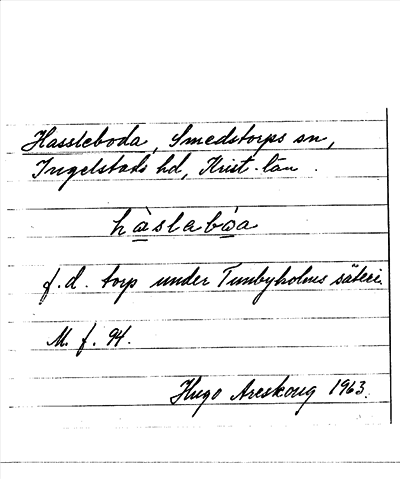 Hassleboda, Smedstorps sn,
Ingelstads hd, Krist. län.
hàslabòa
f.d. torp under Tunbyholms säteri.
M. f. 94.
Hugo Areskoug 1963.